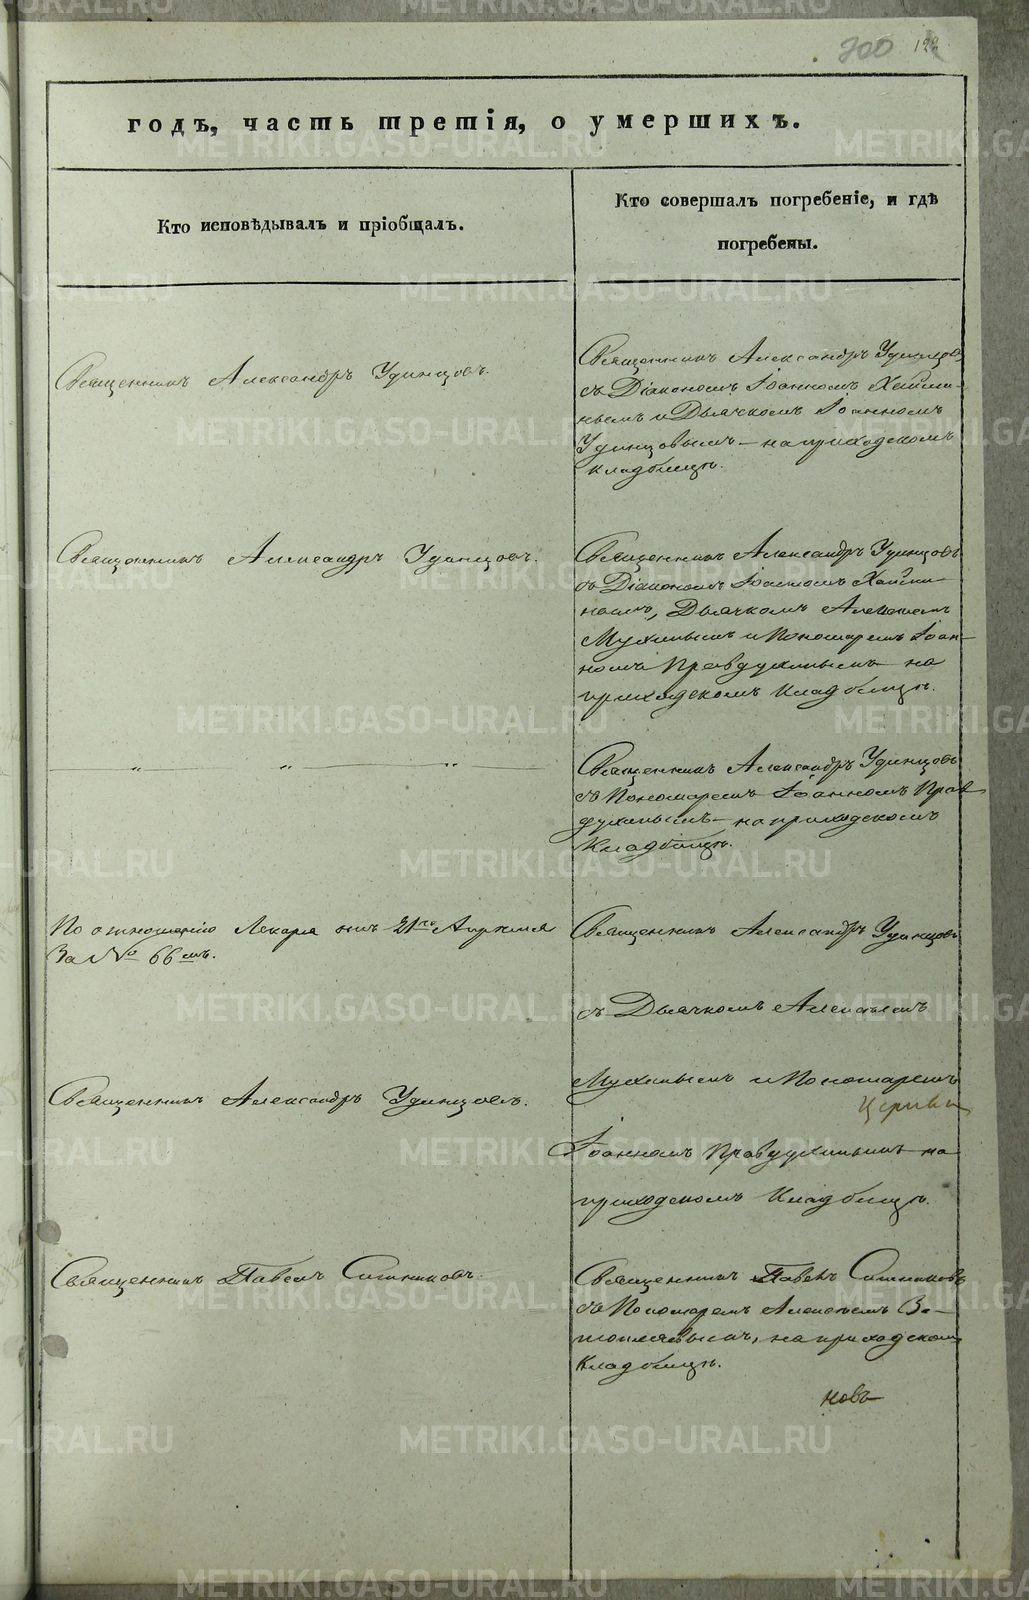 200 122
годъ, часть третія, о умершихъ.
Кто исповѣдывалъ и пріобщалъ.
Кто совершалъ погребеніе, и гдѣ
погребены.
Священникъ Александръ Удинцовъ.
Священникъ Александръ Удинцовъ
съ Діакономъ Іоанномъ
и Дьячкомъ Іоанномъ
Удинцовымъ – на приходскомъ
кладбищѣ.
Священникъ Александръ Удинцовъ.
Священникъ Александръ Удинцовъ
съ Діакономъ Іоанномъ
Дьячкомъ Алексіемъ
Мухинымъ и Пономаремъ Іоан-
номъ Правдухинымъ на
приходскомъ кладбищѣ.
Священникъ Александръ Удинцовъ
съ Пономаремъ Іоанномъ Прав
духинымъ – на приходскомъ
кладбищѣ.
По отношенію Лекаря отъ 21го Апрѣля
За № 66мъ.
Священникъ Александръ Удинцовъ
съ Дьячкомъ Алексіемъ
Мухинымъ и Пономаремъ
Церкви
Іоанномъ Правдухинымъ на
приходскомъ кладбищѣ.
Священникъ Александръ Удинцовъ.
Священникъ Павелъ Ситниковъ.
Священникъ Павелъ Ситниковъ
съ Пономаремъ Алексіемъ
на приходскомъ
кладбищѣ.
новъ
METRIKI.GASO-URAL.RU